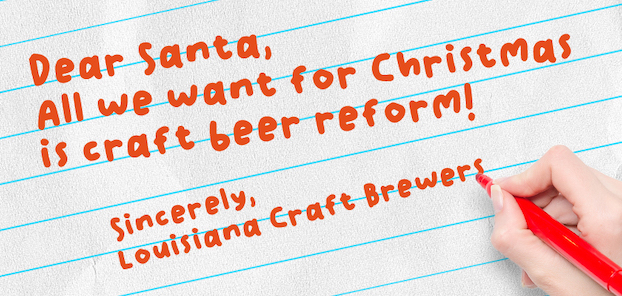 Dear Santa,
All we want for Christmas
is craft beer reform!
Sincerely,
Louisiana Craft Brewers